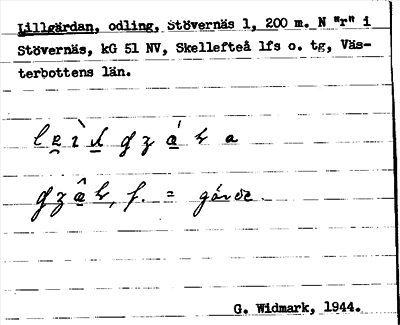 Lillgärdan, odling, Stövernäs 1, 200 m. N "r" i
Stövernäs, kG 51 NV, Skellefteå lfs o. tg, Väs-
terbottens län.
f. = gärde
G. Widmark, 1944.